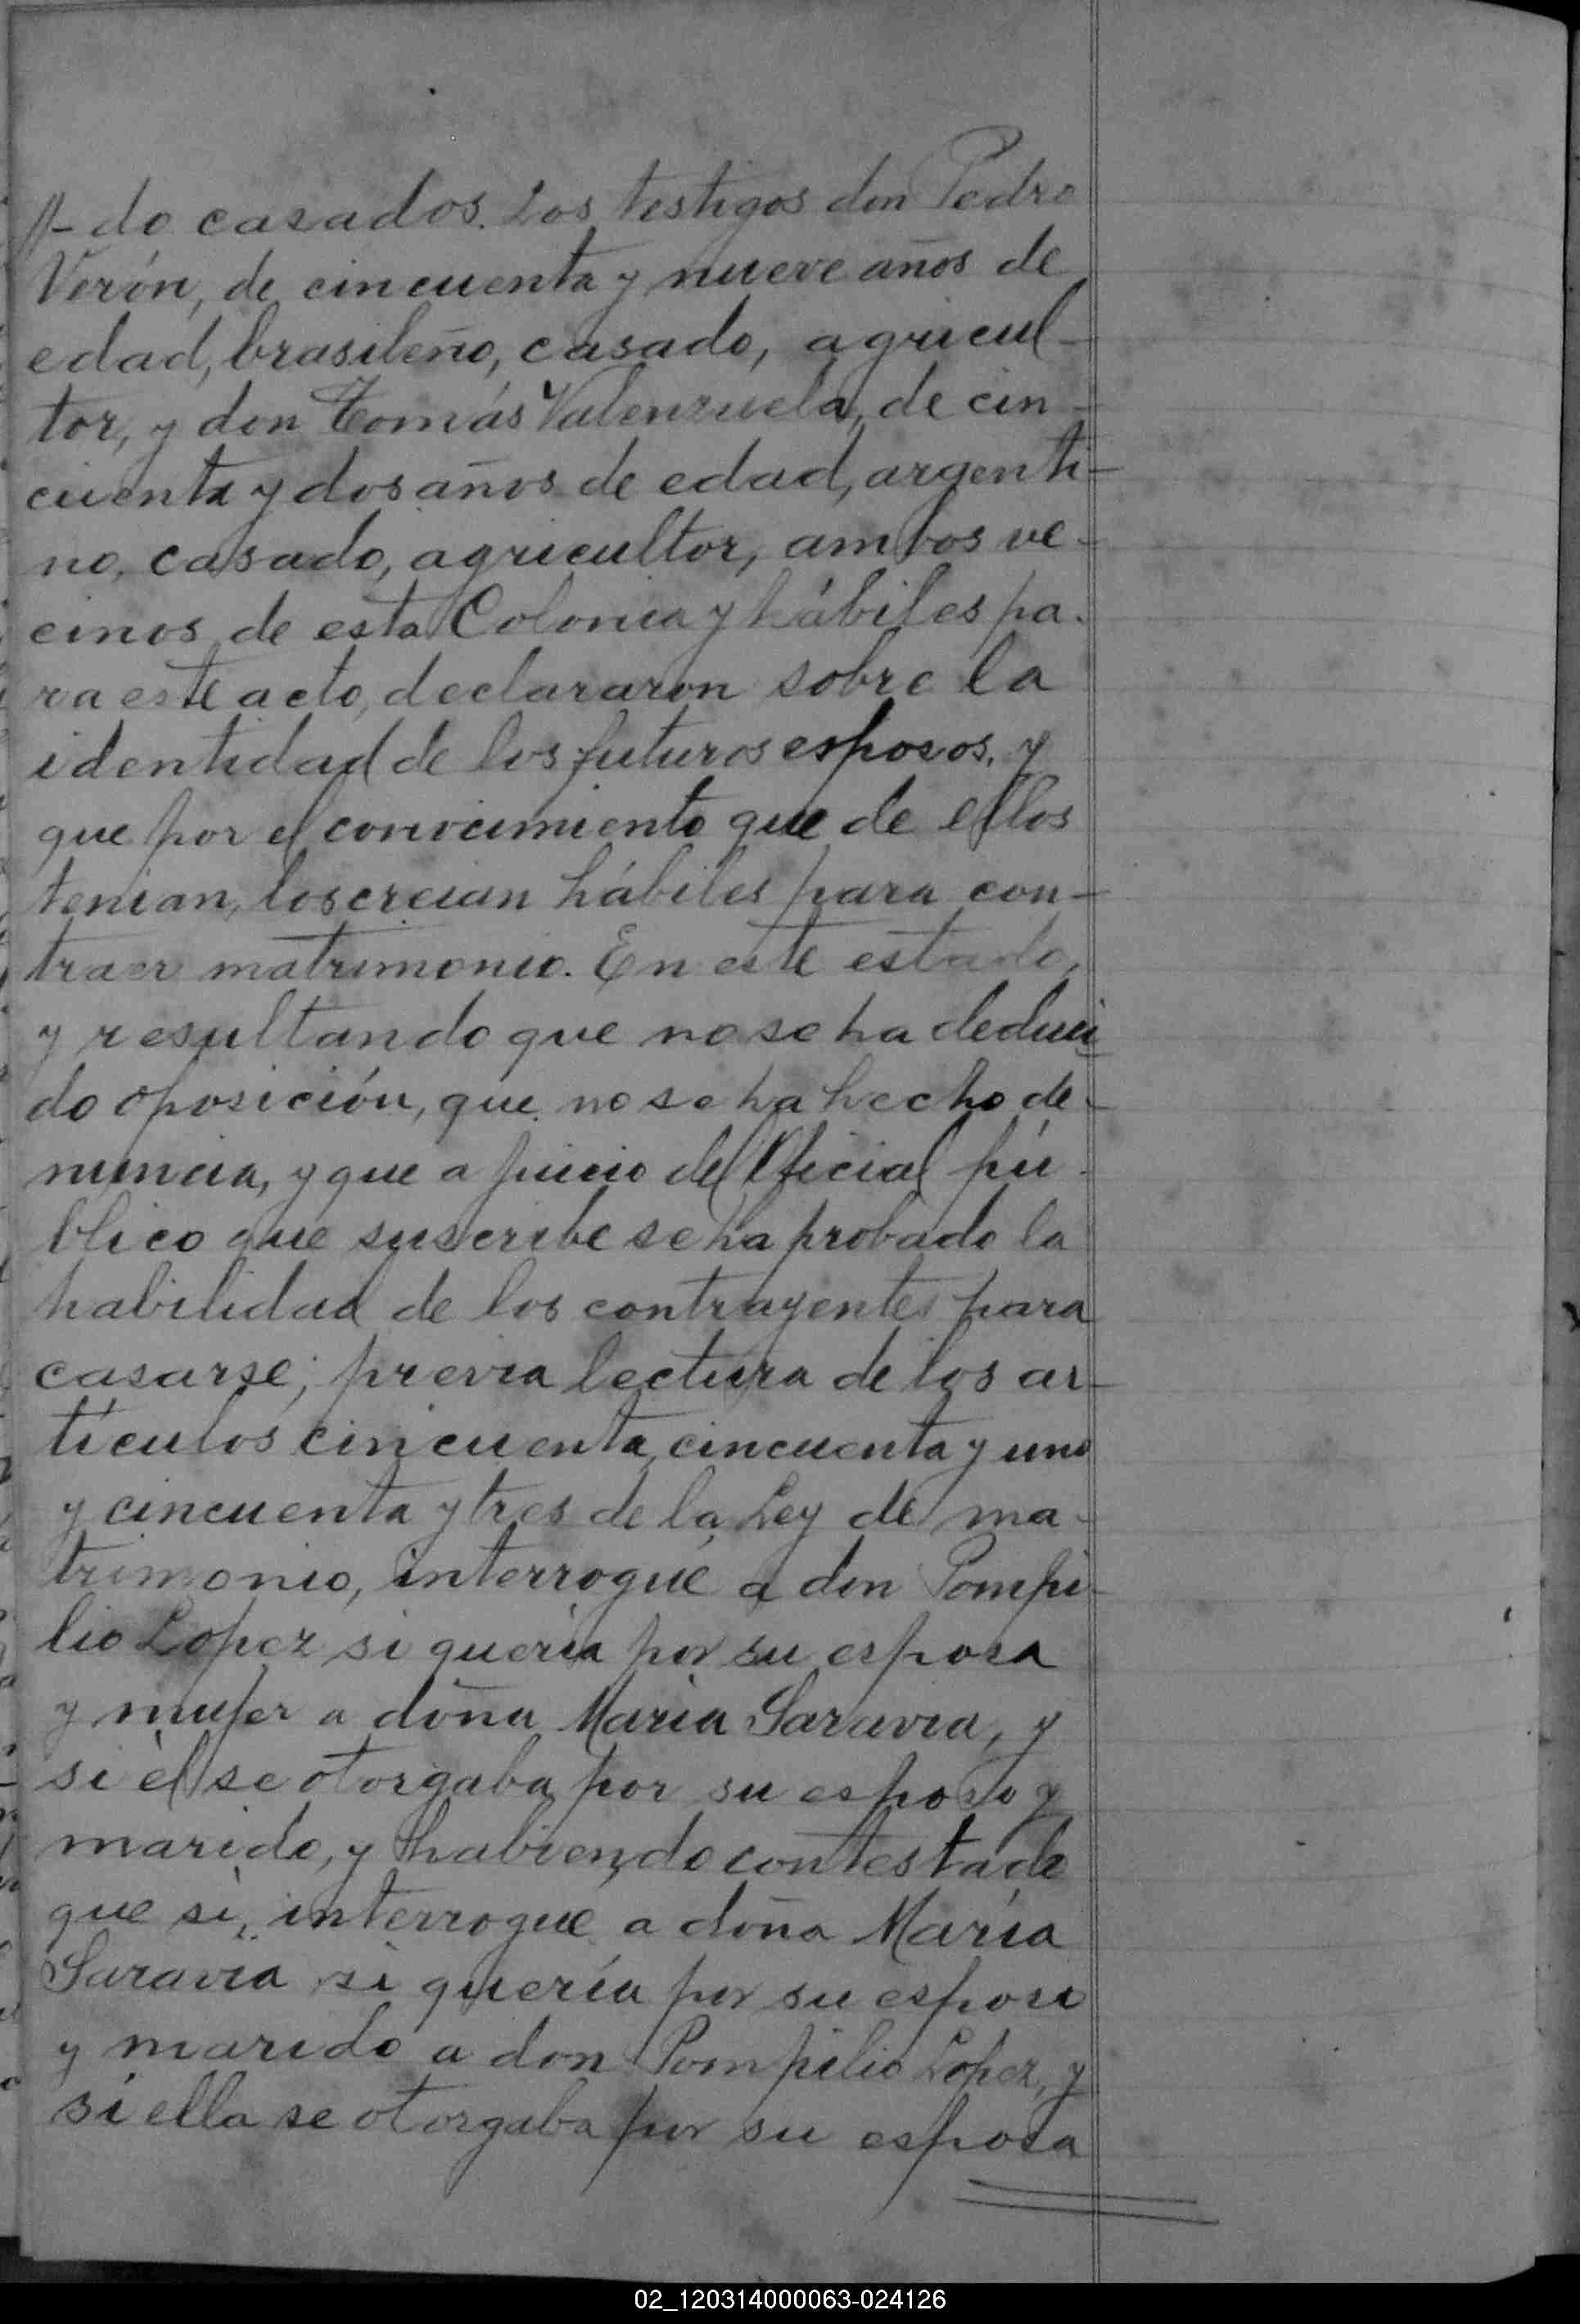 //-do casados. Los testigos don Pedro
Verón, de cincuenta y nueve años de
edad, brasileño, casado, agricul-
tor, y don Tomás Valenzuela, de cin-
cuenta y dos años de edad, argenti-
no, casado, agricultor, ambos ve-
cinos de esta Colonia y hábiles pa-
ra este acto, declararon sobre la
identidad de los futuros esposos, y
que por el conocimiento que de ellos
tenian, los creian hábiles para con-
traer matrimonio. En este estado,
y resultando que no se ha deduci
do oposición, que no se ha hecho de-
nuncia, y que a juicio del Oficial pú-
blico que suscribe se ha probado la
habilidad de los contrayentes para
casarse; previa lectura de los ar-
tículos cincuenta, cincuenta y uno
y cincuenta y tres de la Ley de ma-
trimonio, interrogué a don Pompi-
lio Lopez si quería por su esposa
y mujer a doña María Saravia, y
si él se otorgaba por su esposo y
marido, y habiendo contestado
que si, interrogué a doña María
Saravia si quería por su esposo
y marido a don Pompilio Lopez, y
si ella se otorgaba por su esposa
02_120314000063-024126